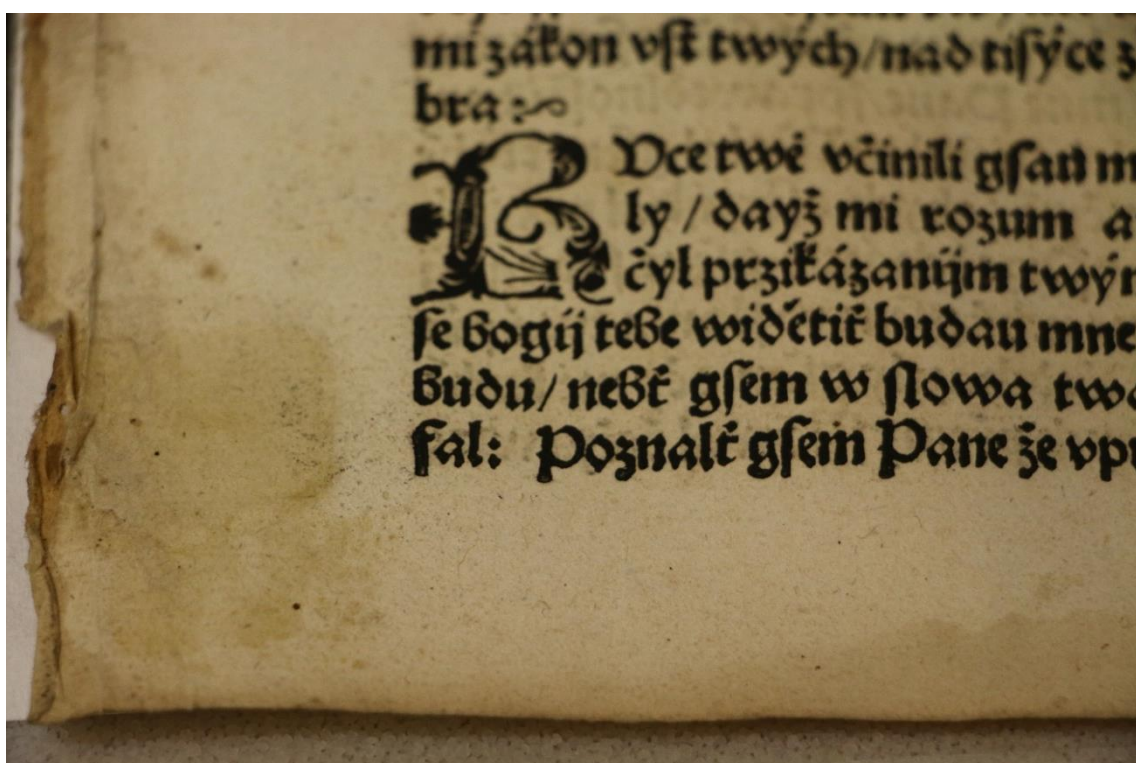 mi zákon vſt twých/nad tiſýce z
bra:
RVce twé včinili gſau m
ly / dayž mi rozum a
čyl przikázanijm twým
ſe bogij tebe widětiť budau mne
budu/ nebť gſem w ſlowa twa
fal: Poznalť gſem Pane že vpr